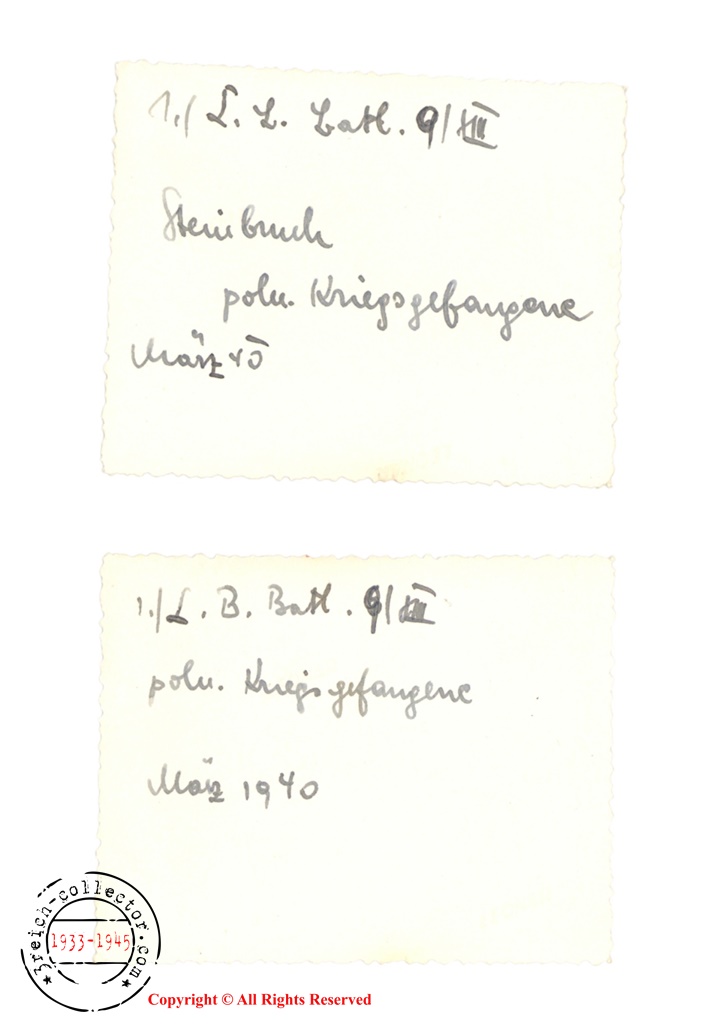 1./ L. B. Batl. 9/XIII
Steinbruch
poln. Kriegsgefangene
März 40
1./ L. B. Batl. 9/XIII
poln. Kriegsgefangene
März 1940
3reich-collector.com
1933-1945
Copyright © All Rights Reserved